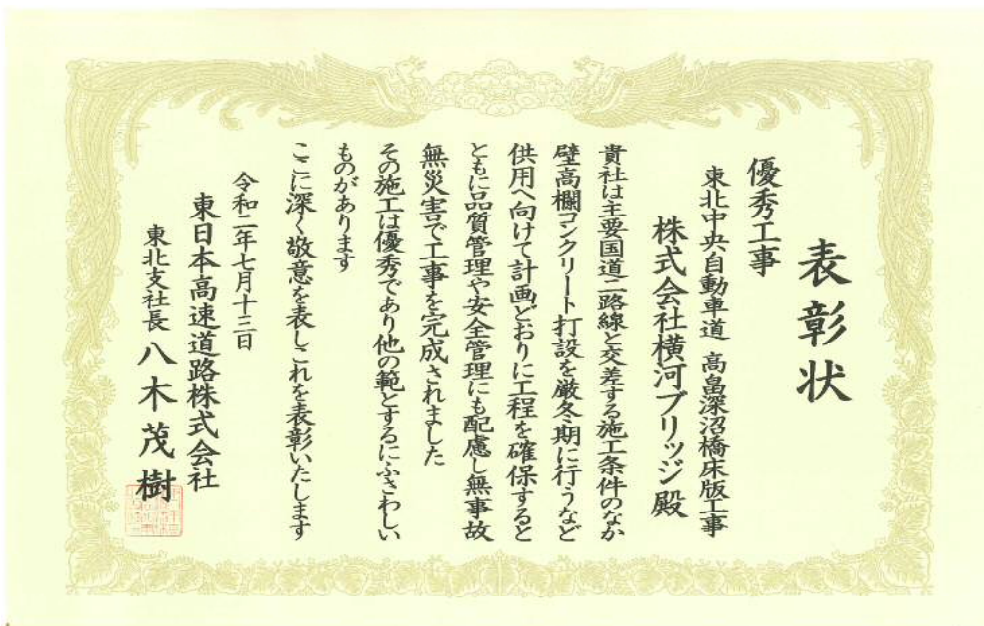 表彰状
優秀工事
東北中央自動車道 高畠深沼橋床版工事
株式会社横河ブリッジ 殿
貴社は主要国道二路線と交差する施工条件のなか
壁高欄コンクリート打設を厳冬期に行うなど
供用へ向けて計画どおりに工程を確保すると
ともに品質管理や安全管理にも配慮し無事故
無災害で工事を完成されました
その施工は優秀であり他の範とするにふさわしい
ものがあります
ここに深く敬意を表しこれを表彰いたします
令和二年七月十三日
東日本高速道路株式会社
東北支社長 八木茂樹